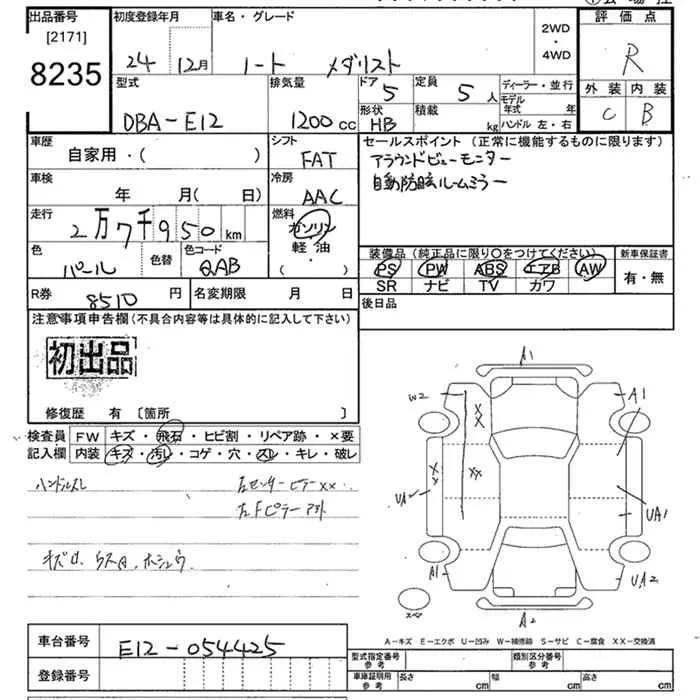 出品番号 初度登録年月 車名・グレード 2WD・4WD 評価点
[2171]
8235
24 12月 ノート メダリスト R
型式 排気量 ドア 5 定員 5人 ディーラー・並行 外装 内装
モデル年式 年
DBA-E12 1200cc 形状 HB 積載 kg ハンドル 左・右 C B
車歴 シフト セールスポイント(正常に機能するものに限ります)
自家用・( ) FAT アラウンドビューモニター
車検 冷房 自動防眩ルームミラー
年 月( 日) AAC
走行 燃料
2万7千950km ガソリン
軽・油
・( )
色 色替 色コード 装備品(純正品に限り○をつけてください) 新車保証書
パール QAB PS PW ABS エアB AW 有・無
SR ナビ TV カワ
R券 8510円 名変期限 月 日 後日品
注意事項申告欄(不具合内容等は具体的に記入して下さい)
初出品
修復歴 有 〔箇所 〕
検査員 FW キズ・飛石・ヒビ割・リペア跡・×要
記入欄 内装 キズ・汚レ・コゲ・穴・スレ・キレ・破レ
ハンドルスレ 左センターピラーXX
左Fピラー
キズ
A1
W2
A1
XX
XX
XX
UA1
UA1
A1
UA2
スペア
A2
A-キズ E-エクボ U-凹み W-補修跡 S-サビ C-腐食 XX-交換済
車台番号 E12-054425
型式指定番号 参考 類別区分番号 参考
登録番号 車庫証明用 参考 長さ cm 幅 cm 高さ cm